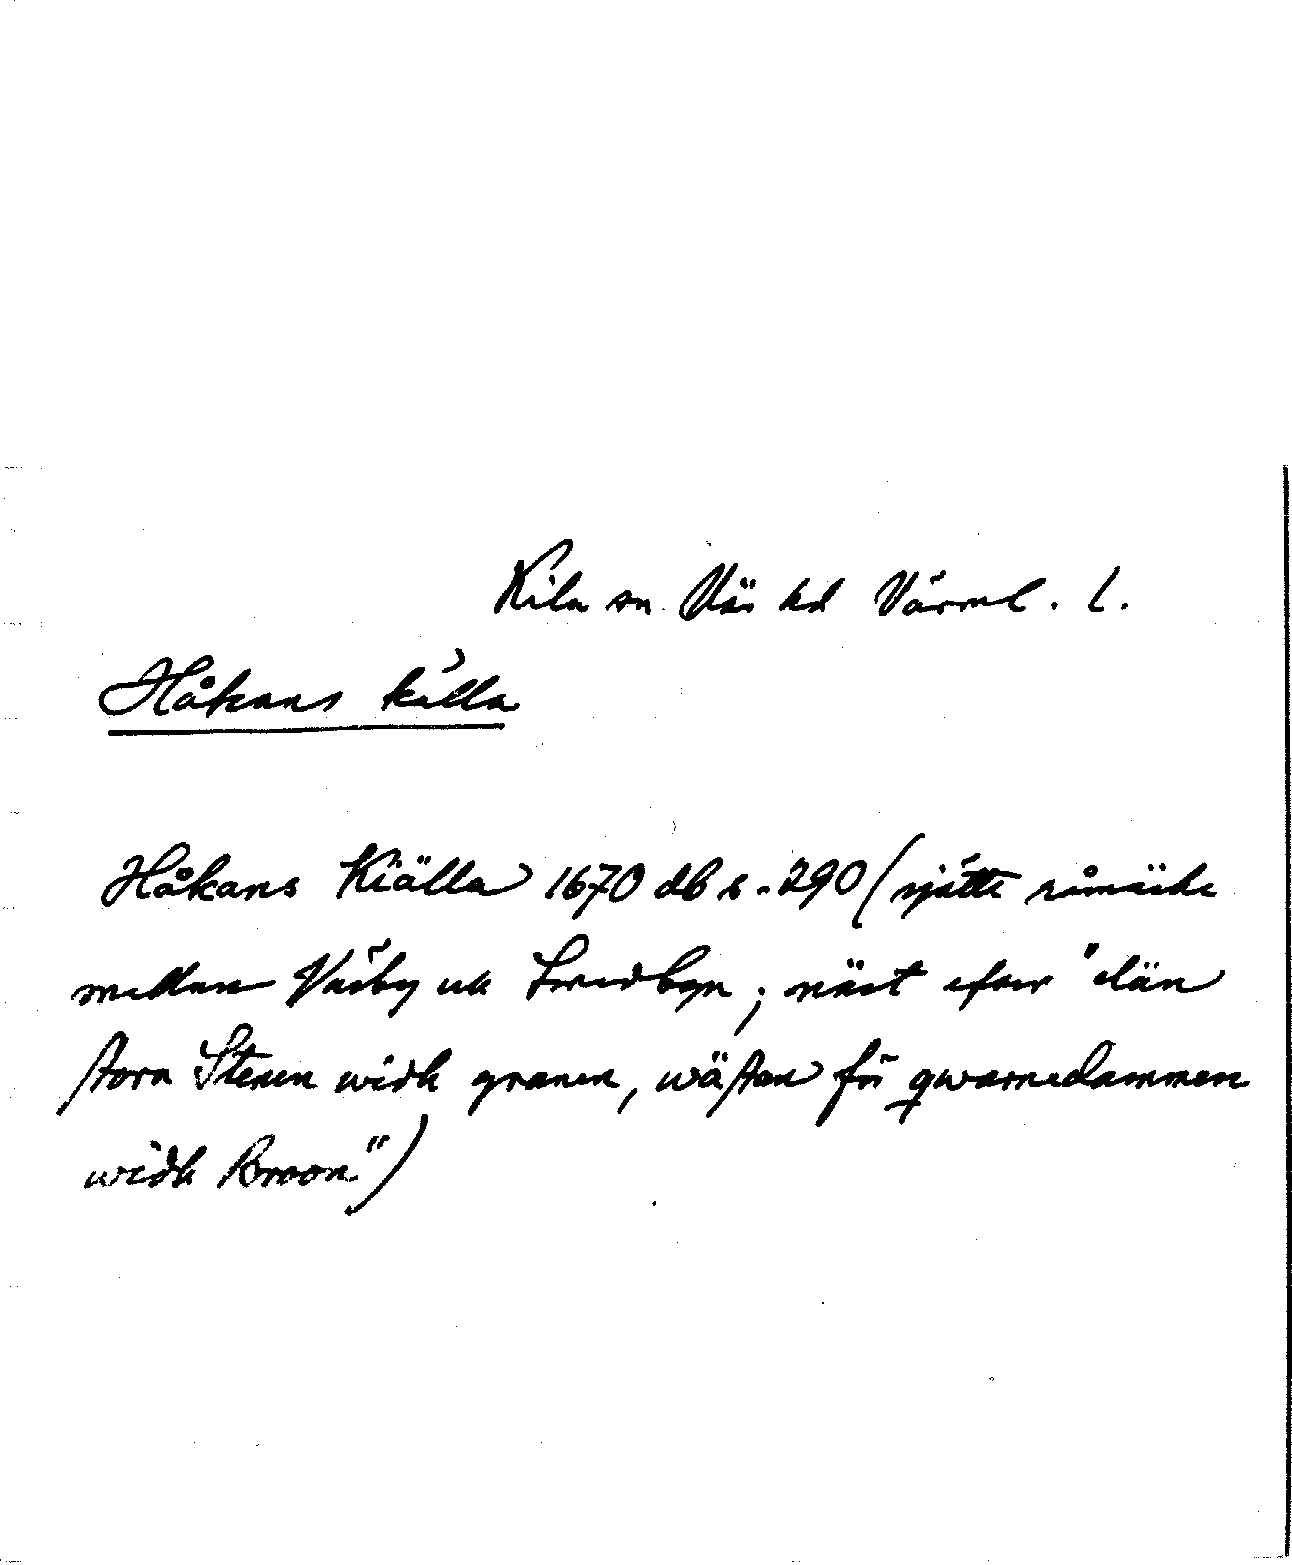 Kila sn. Näs hd Värml. l.
Håkans källa
Håkans Kiälla 1670 db s. 290 (sjätte råmärke
mellan Väsby och Smedbyn; näst efter "dän
stora Stenen widh granen, wästan för qwarnedammen
widh Broon")